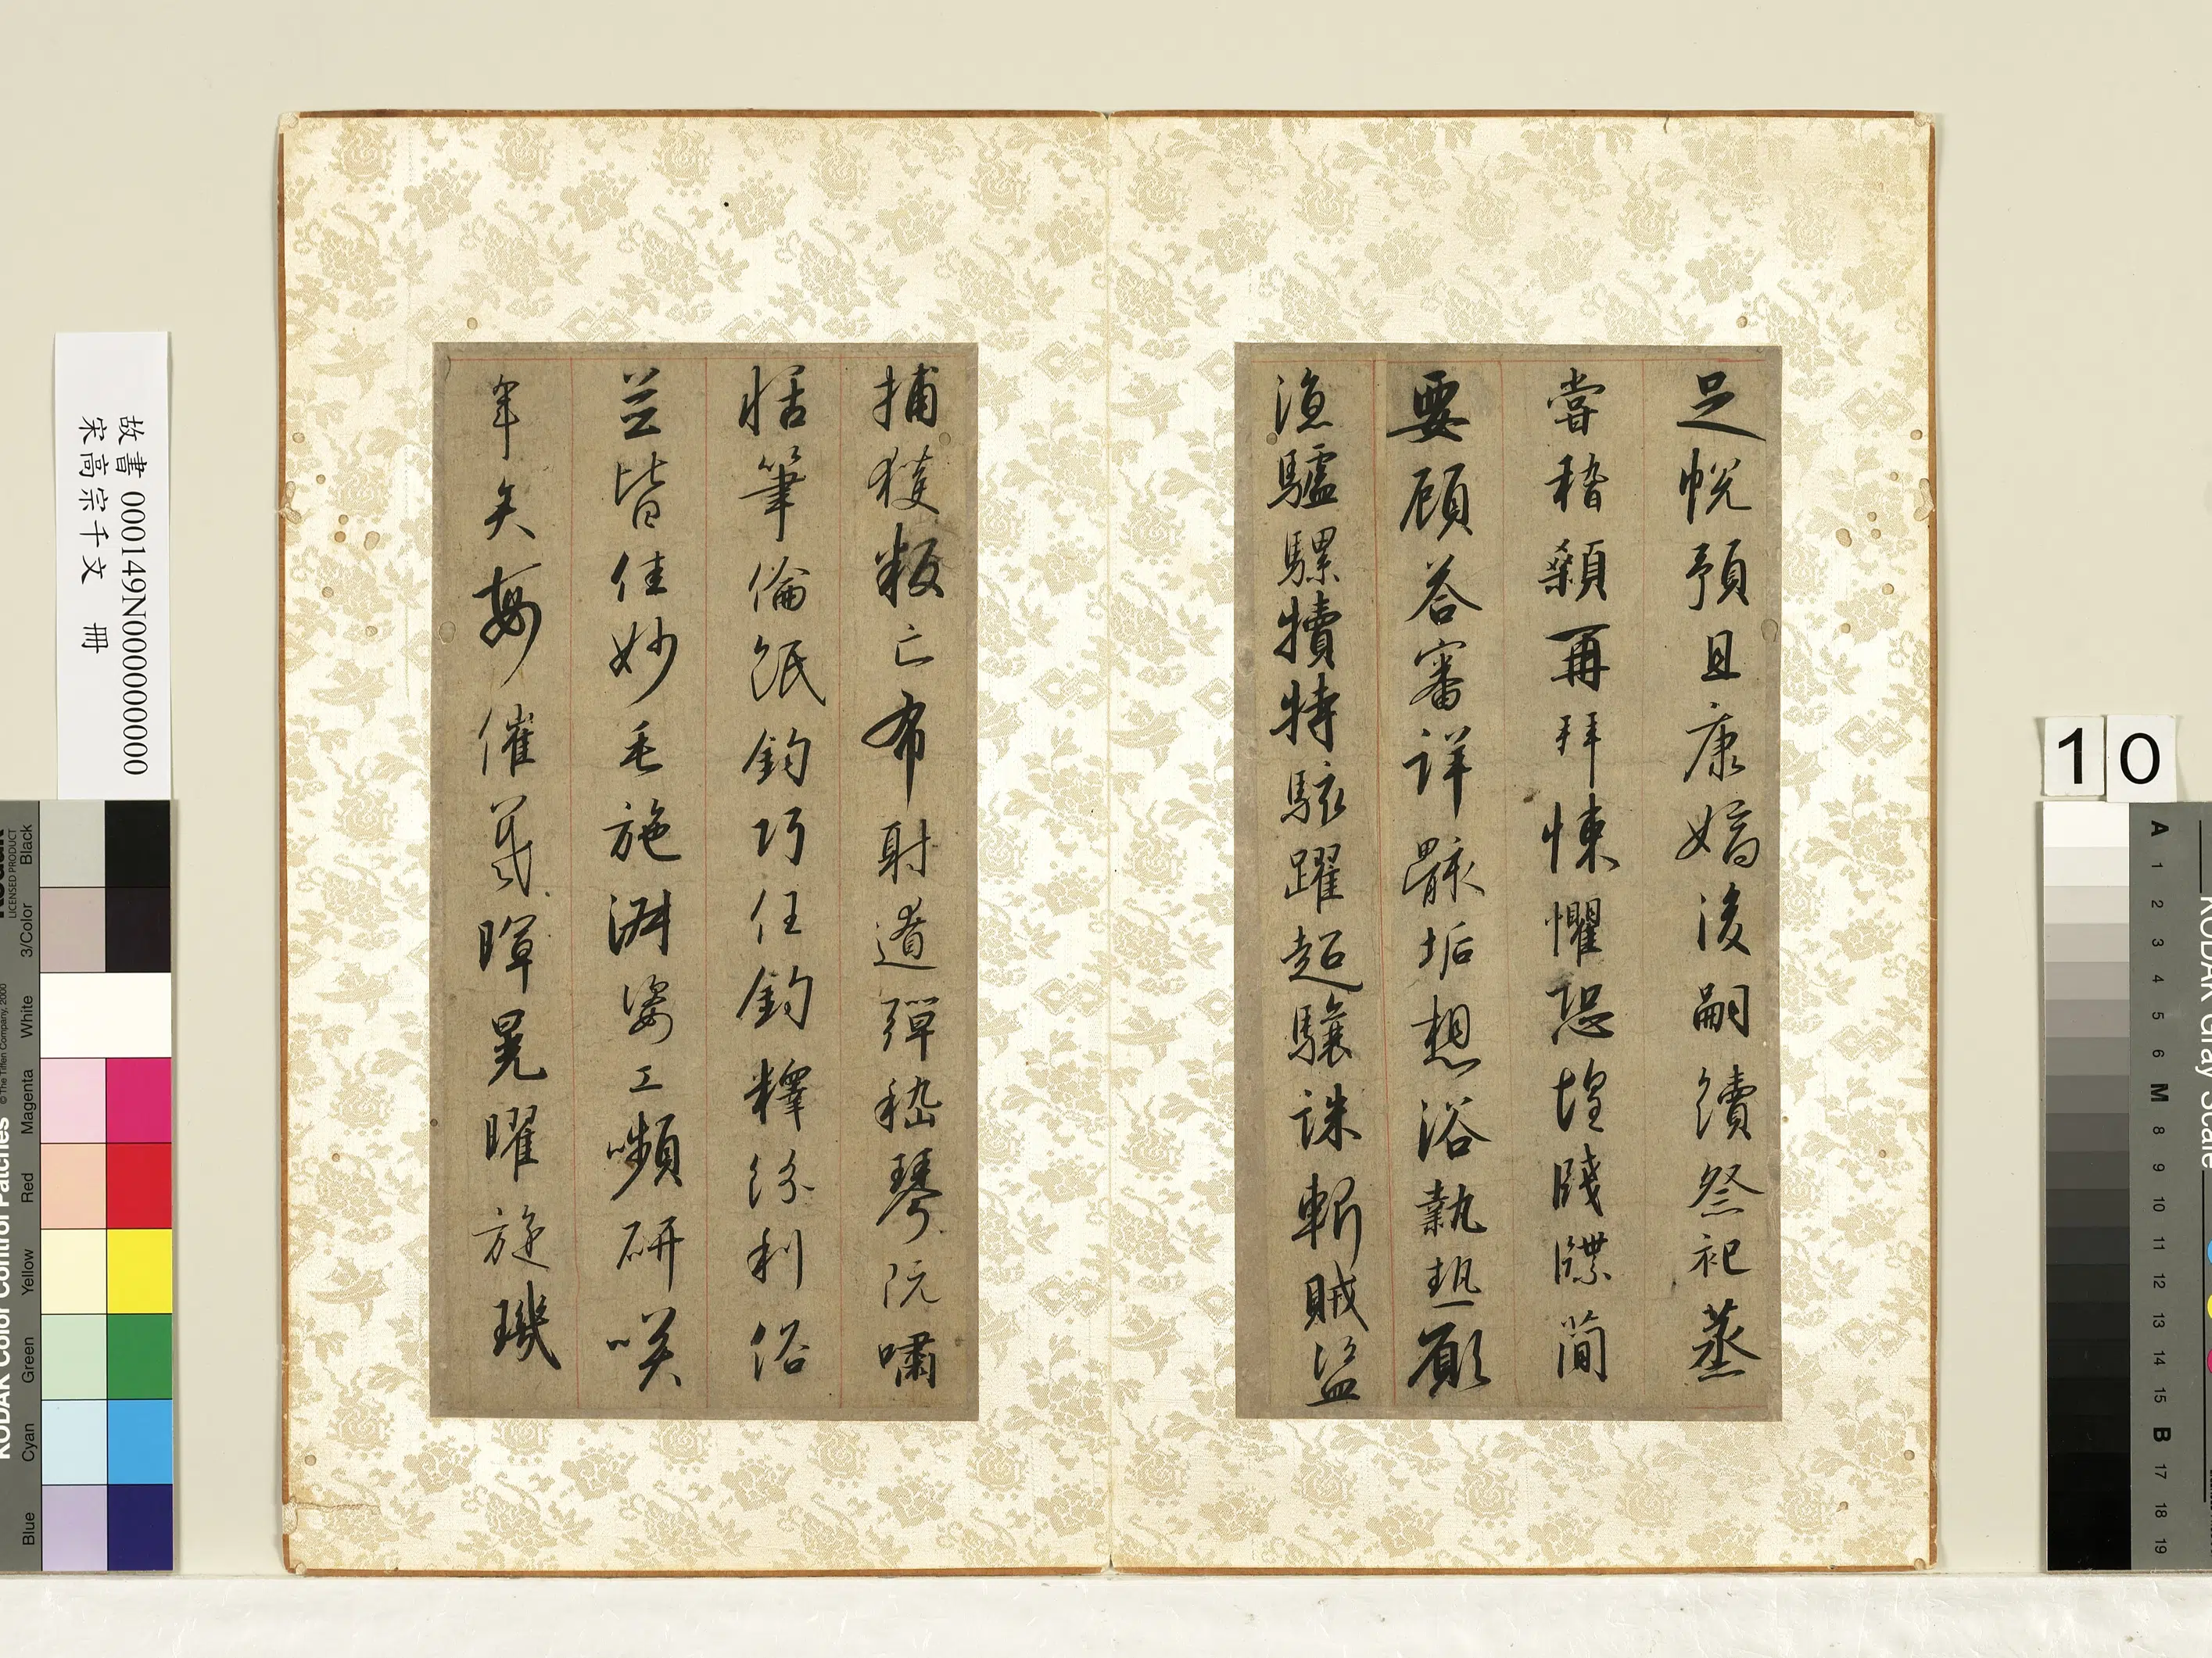 足悅預且康嫡後嗣續祭祀蒸
嘗稽顙再拜悚懼恐惶牋牒簡
要顧答審詳骸垢想浴執熱願
涼驢騾犢特駭躍超驤誅斬賊盜
捕獲叛亡布射遼彈嵇琴阮嘯
恬筆倫紙鈞巧任釣釋紛利俗
並皆佳妙毛施淑姿工嚬研咲
年矢每催羲暉晃曜旋璣
故書 000149N000000000
宋高宗千文 冊
10
KODAK Color Control Patches
LICENSED PRODUCT
© The Tiffen Company, 2000
Blue Cyan Green Yellow Red Magenta White 3/Color Black
KODAK Gray Scale
A 1 2 3 4 5 6 M 8 9 10 11 12 13 14 15 B 17 18 19